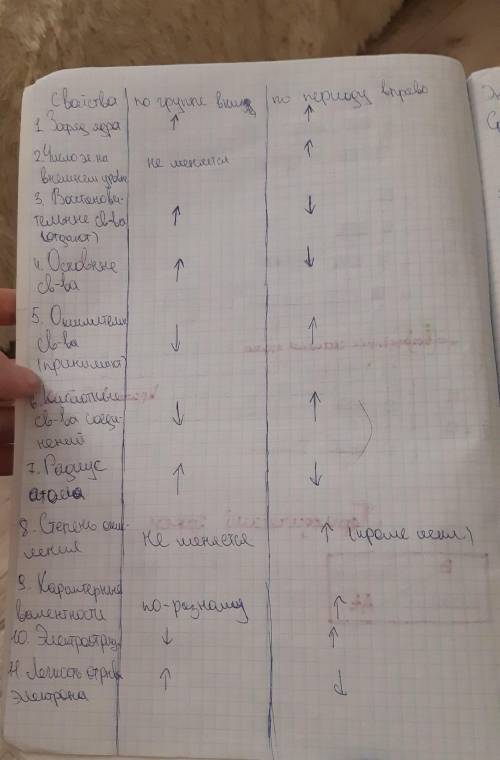 Свойства по группе вниз по периоду вправо
1. Заряд ядра ↑ ↑
2. Число эл на
внешнем уровне не меняется ↑
3. Восстанови-
тельные св-ва ↑ ↓
(отдают)
4. Основные ↑ ↓
св-ва
5. Окислители
св-ва ↓ ↑
(принимают)
6. Кислотные
св-ва соеди- ↓ ↑
нений
7. Радиус ↑ ↓
атома
8. Степень окис-
ления не меняется ↑ (кроме
9. Характерные
валентности по-разному ↑
10. Электроотриц ↓ ↑
11. Легкость отрыва ↑ ↓
электрона